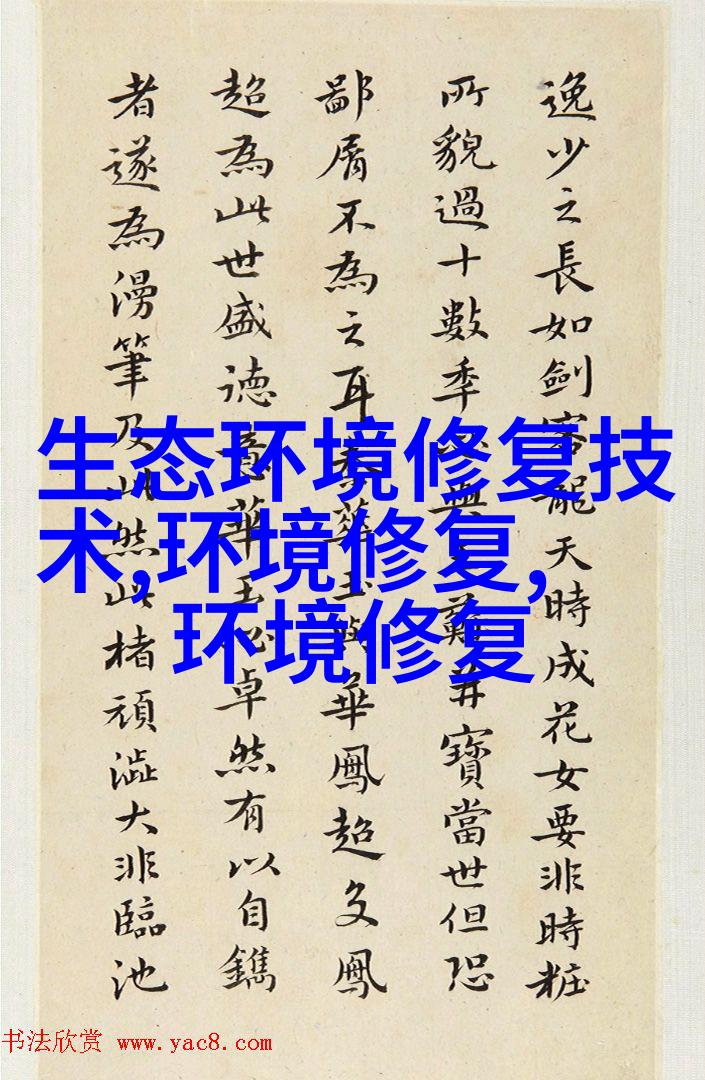 逸少之長如劍客龍天時成花女要非時粧
所貌過十數季難并寶當世但恐
鄙屑不為之耳華玉華鳳超鳳
超為此世盛德意華玉必卓然有以自鐫
者遂為漫筆及此然此楮頑澁大非臨池
生态环境修复技
术,环境修复,
环境修复
书法欣赏 www.yac8.com